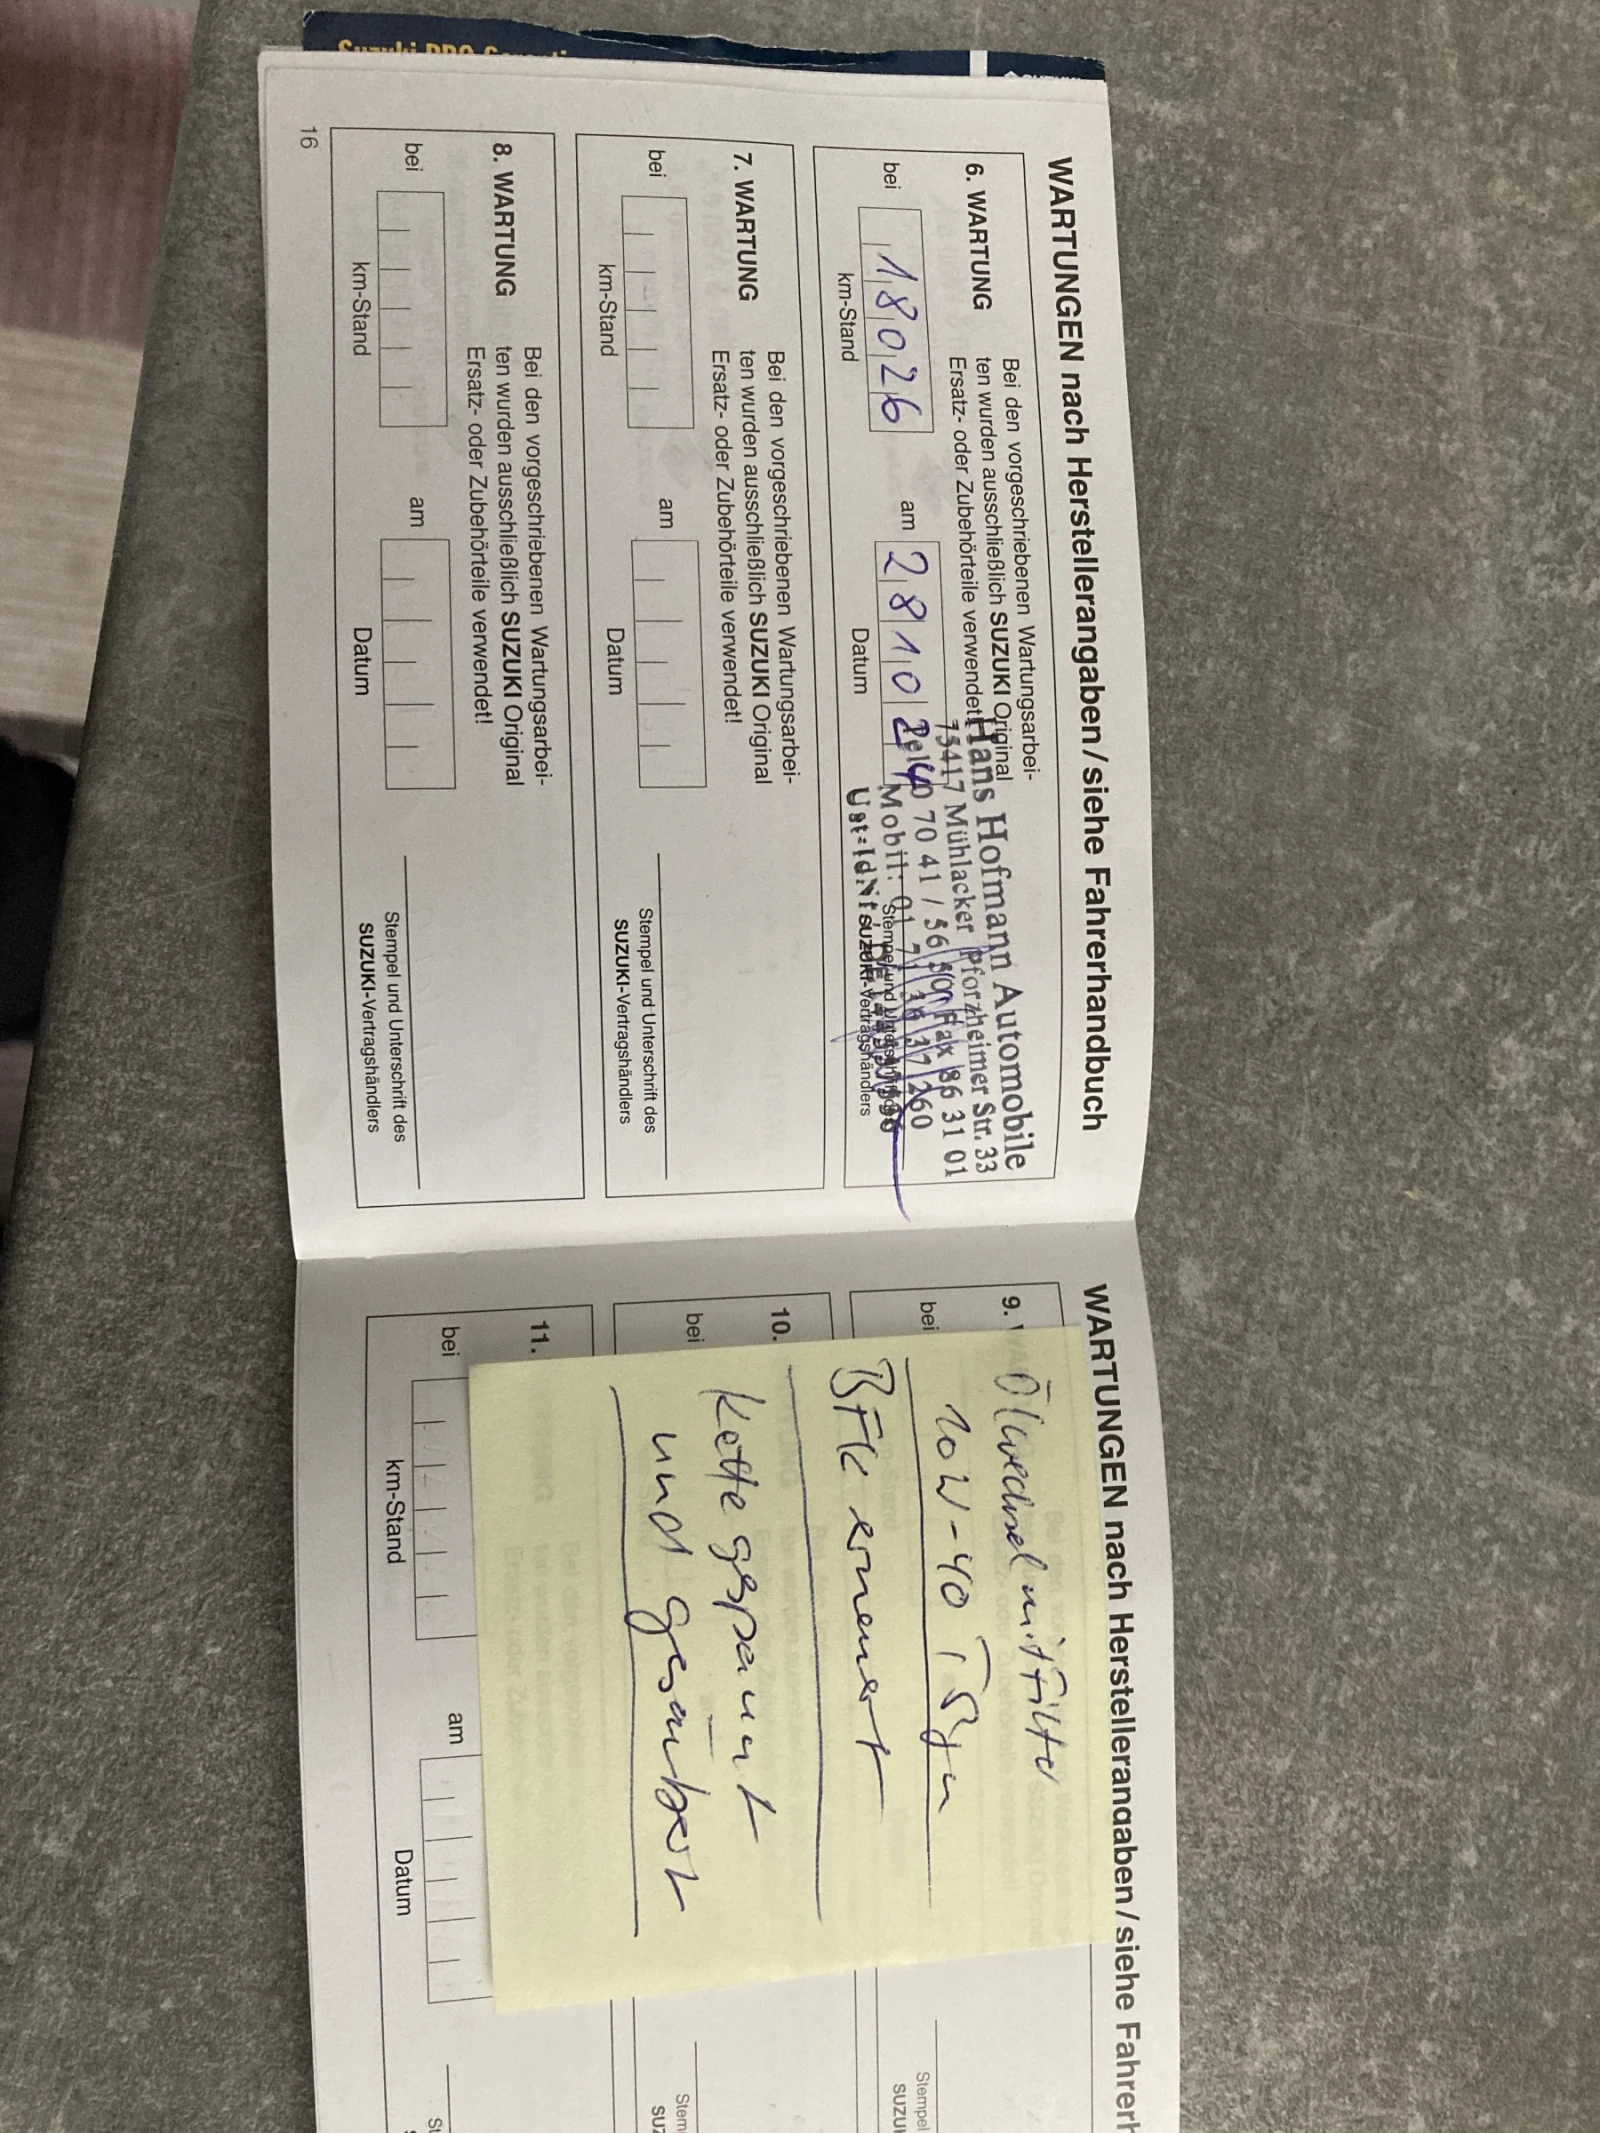 WARTUNGEN nach Herstellerangaben/siehe Fahrerhandbuch
6. WARTUNG
Bei den vorgeschriebenen Wartungsarbei-
ten wurden ausschließlich SUZUKI Original
Ersatz- oder Zubehörteile verwendet!
bei 18026 am 281024
km-Stand Datum
Hans Hofmann Automobile
75417 Mühlacker Pforzheimer Str. 33
70 41 / 36 Fax 86 31 01
Mobil: 01 71 36 37 260
Stempel und Unterschrift des
SUZUKI-Vertragshändlers
7. WARTUNG
Bei den vorgeschriebenen Wartungsarbei-
ten wurden ausschließlich SUZUKI Original
Ersatz- oder Zubehörteile verwendet!
bei am
km-Stand Datum
Stempel und Unterschrift des
SUZUKI-Vertragshändlers
8. WARTUNG
Bei den vorgeschriebenen Wartungsarbei-
ten wurden ausschließlich SUZUKI Original
Ersatz- oder Zubehörteile verwendet!
bei am
km-Stand Datum
Stempel und Unterschrift des
SUZUKI-Vertragshändlers
16
WARTUNGEN nach Herstellerangaben/siehe Fahrerh
9.
bei
Stempel
SUZU
10.
bei
Stem
SUZ
11.
bei am
km-Stand Datum
St
Ölwechsel mit Filter
10W-40
BFK erneuert
Kette gespannt
und gesäubert